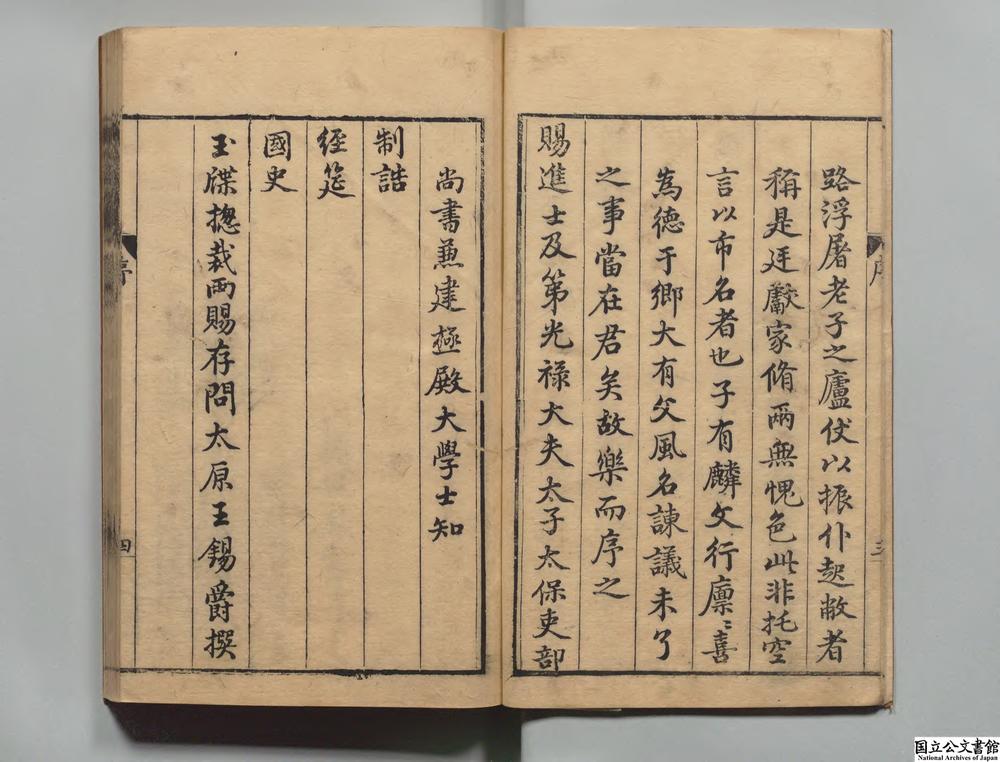 路浮屠老子之廬伏以振仆起敝者
稱是廷獻家脩兩無愧色此非托空
言以市名者也子有麟文行廩〻喜
為德于鄉大有父風名諫議未了
之事當在君矣故樂而序之
賜進士及第光祿大夫太子太保吏部
序
三
尚書兼建極殿大學士知
制誥
經筵
國史
玉牒摠裁兩賜存問太原王錫爵撰
序
四
国立公文書館
National Archives of Japan